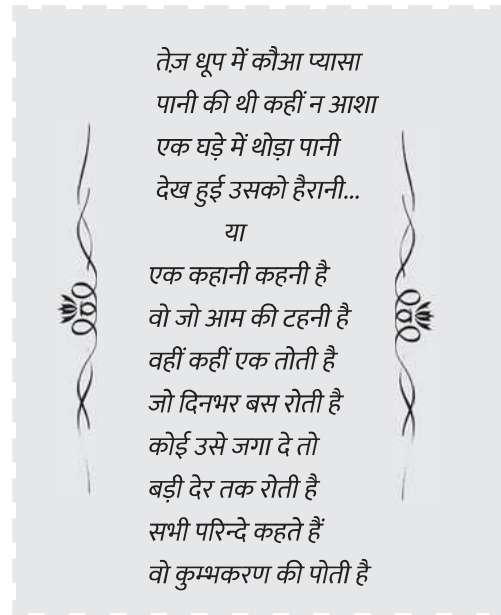 तेज़ धूप में कौआ प्यासा
पानी की थी कहीं न आशा
एक घड़े में थोड़ा पानी
देख हुई उसको हैरानी...
या
एक कहानी कहनी है
वो जो आम की टहनी है
वहीं कहीं एक तोती है
जो दिनभर बस रोती है
कोई उसे जगा दे तो
बड़ी देर तक रोती है
सभी परिन्दे कहते हैं
वो कुम्भकरण की पोती है